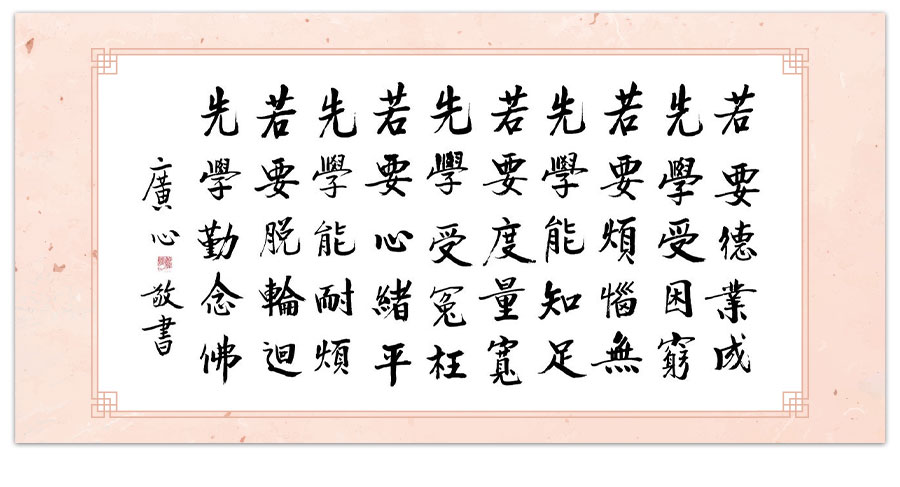 若要德業成
先學受困窮
若要煩惱無
先學能知足
若要度量寬
先學受冤枉
若要心緒平
先學能耐煩
若要脫輪迴
先學勤念佛
廣心敬書